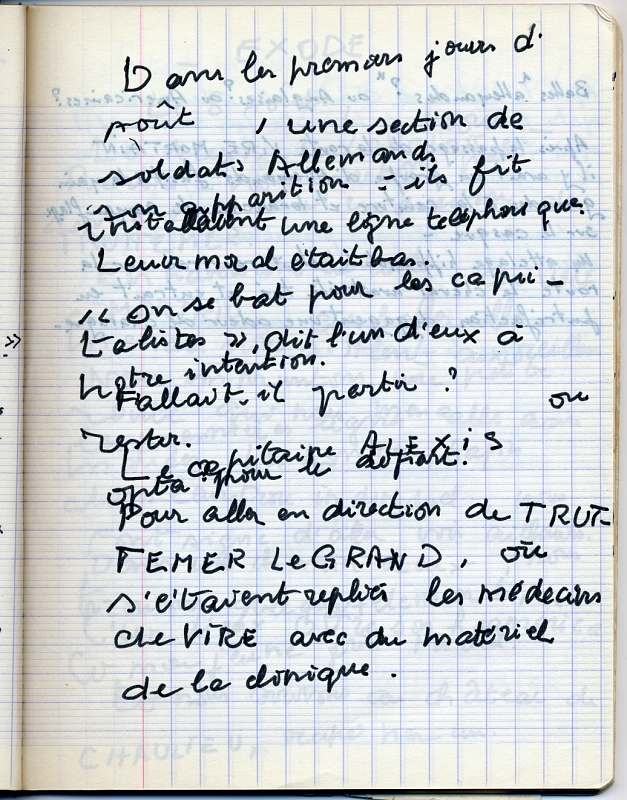 Dans les premiers jours d'
août, une section de
soldats Allemands
fit
son apparition - ils
installaient une ligne telephonique.
Leur moral était bas.
« On se bat pour les capi-
talistes », dit l'un d'eux à
notre intention.
Fallait-il partir ? ou
rester.
Le capitaine ALEXIS
opta pour le départ.
Pour aller en direction de TRUT-
TEMER Le GRAND, où
s'étaient repliés les médecins
de VIRE avec du matériel
de la clinique.